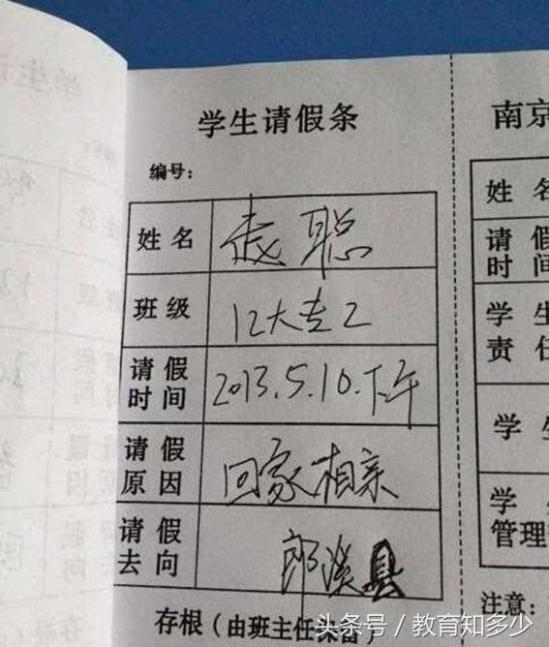 学生请假条
编号:
姓名 聪
班级 12大专2
请假时间 2013.5.10.下午
请假原因 回家相亲
请假去向 郎溪县
存根(由班主任保留)
南京
姓名
请假
时间
学生
责任
学生
学
管理
注意:
头条号 / 教育知多少